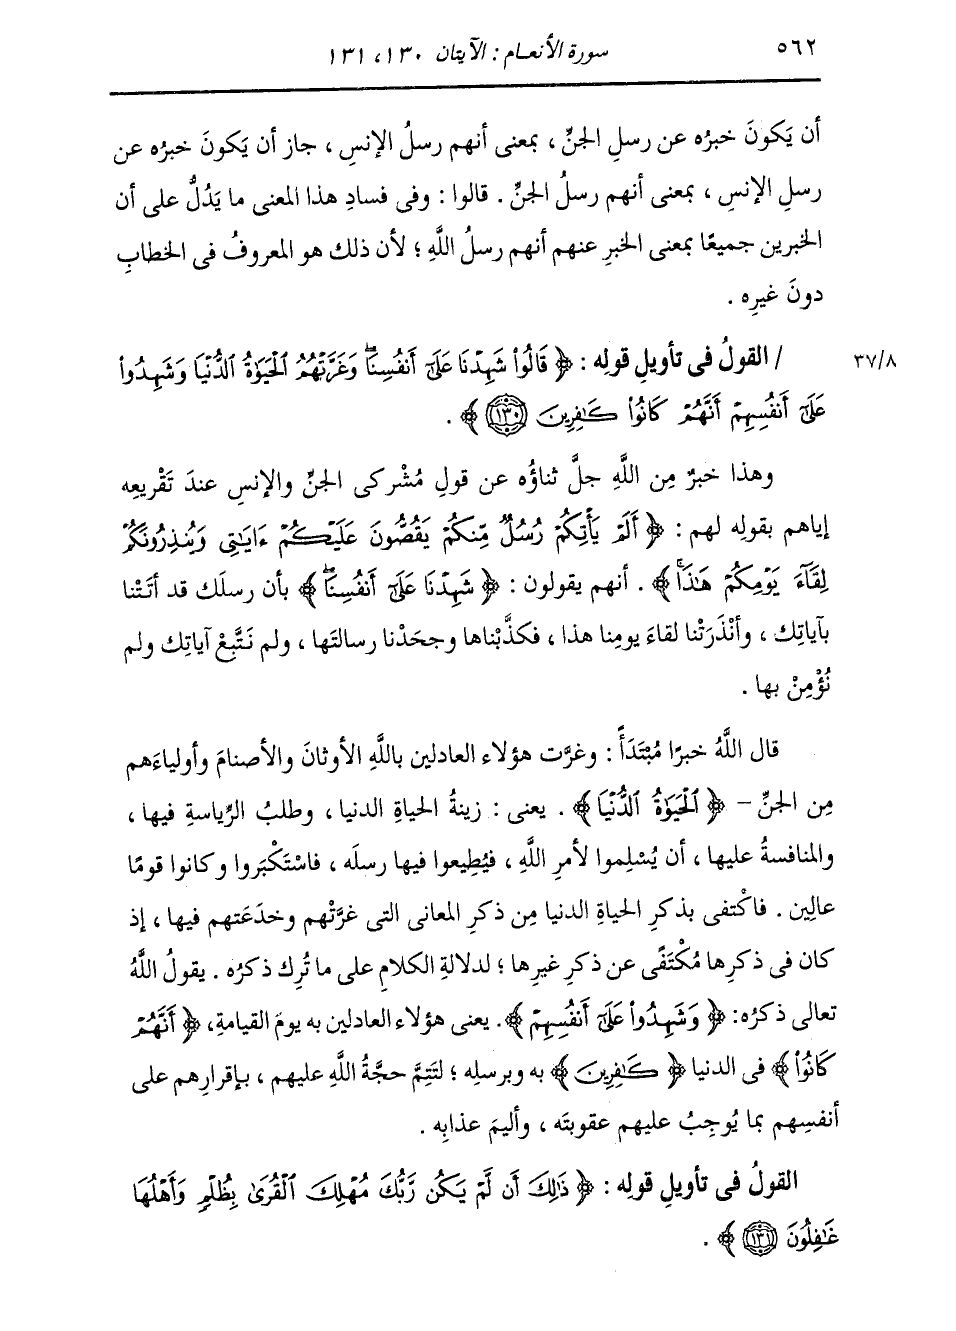 ٥٦٢
سورة الأنعام : الآيتان ١٣٠، ١٣١
أن يَكونَ خبرُه عن رسلِ الجنِّ ، بمعنى أنهم رسلُ الإنسِ ، جاز أن يَكونَ خبرُه عن
رسلِ الإنسِ ، بمعنى أنهم رسلُ الجنِّ . قالوا : وفى فسادِ هذا المعنى ما يَدُلُّ على أن
الخبرين جميعًا بمعنى الخبرِ عنهم أنهم رسلُ اللَّهِ ؛ لأن ذلك هو المعروفُ فى الخطابِ
دونَ غيرِه .
٣٧/٨
/ القولُ فى تأويلِ قولِه : ﴿ قَالُوا۟ شَهِدْنَا عَلَىٰٓ أَنفُسِنَا ۖ وَغَرَّتْهُمُ ٱلْحَيَوٰةُ ٱلدُّنْيَا وَشَهِدُوا۟
عَلَىٰٓ أَنفُسِهِمْ أَنَّهُمْ كَانُوا۟ كَـٰفِرِينَ ١٣٠ ﴾ .
وهذا خبرٌ مِن اللَّهِ جلَّ ثناؤُه عن قولِ مُشْركى الجنِّ والإنسِ عندَ تَقْريعِه
إياهم بقولِه لهم : ﴿ أَلَمْ يَأْتِكُمْ رُسُلٌ مِّنكُمْ يَقُصُّونَ عَلَيْكُمْ ءَايَـٰتِى وَيُنذِرُونَكُمْ
لِقَآءَ يَوْمِكُمْ هَـٰذَا ۚ ﴾ . أنهم يقولون : ﴿ شَهِدْنَا عَلَىٰٓ أَنفُسِنَا ۖ ﴾ بأن رسلَك قد أتَتْنا
بآياتِك ، وأنْذَرَتْنا لقاءَ يومِنا هذا ، فكذَّبْناها وجحَدْنا رسالتَها ، ولم نَتَّبِعْ آياتِك ولم
نُؤْمِنْ بها .
قال اللَّهُ خبرًا مُبْتَدَأً : وغرَّت هؤلاء العادلين باللَّهِ الأوثانَ والأصنامَ وأولياءَهم
مِن الجنِّ - ﴿ ٱلْحَيَوٰةُ ٱلدُّنْيَا ﴾ . يعنى : زينةُ الحياةِ الدنيا ، وطلبُ الرِّياسةِ فيها ،
والمنافسةُ عليها ، أن يُسْلِموا لأمرِ اللَّهِ ، فيُطِيعوا فيها رسلَه ، فاسْتَكْبَروا وكانوا قومًا
عالِين . فاكْتفى بذكرِ الحياةِ الدنيا مِن ذكرِ المعانى التى غرَّتْهم وخدَعَتهم فيها ، إذ
كان فى ذكرِها مُكْتَفًى عن ذكرِ غيرِها ؛ لدلالةِ الكلامِ على ما تُرِك ذكرُه . يقولُ اللَّهُ
تعالى ذكرُه: ﴿ وَشَهِدُوا۟ عَلَىٰٓ أَنفُسِهِمْ ﴾. يعنى هؤلاء العادلين به يومَ القيامةِ، ﴿ أَنَّهُمْ
كَانُوا۟ ﴾ فى الدنيا ﴿ كَـٰفِرِينَ ﴾ به وبرسلِه ؛ لتَتِمَّ حجَّةُ اللَّهِ عليهم ، بإقرارِهم على
أنفسِهم بما يُوجِبُ عليهم عقوبتَه ، وأليمَ عذابِه .
القولُ فى تأويلِ قولِه : ﴿ ذَٰلِكَ أَن لَّمْ يَكُن رَّبُّكَ مُهْلِكَ ٱلْقُرَىٰ بِظُلْمٍ وَأَهْلُهَا
غَـٰفِلُونَ ١٣١ ﴾ .